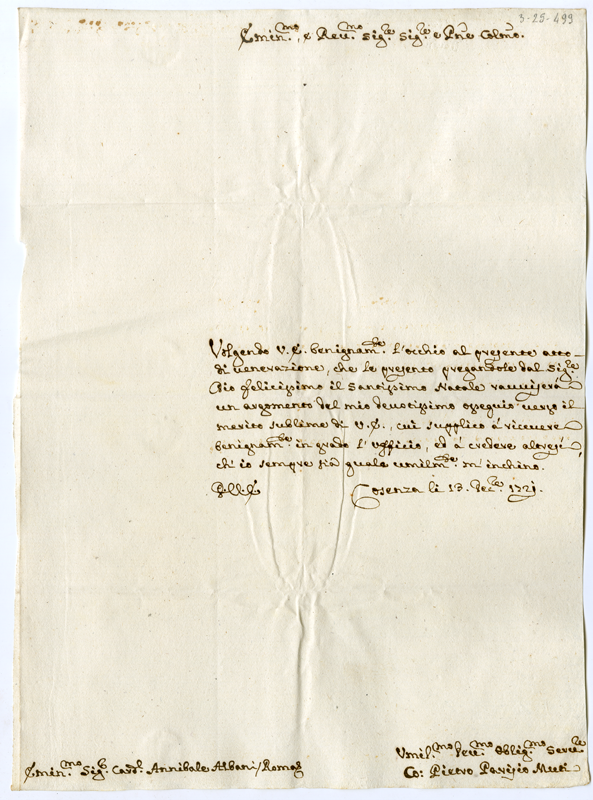 3-25-499
Emin.mo, e Rev.mo Sig.re Sig.re e Pñe Colmo.
Volgendo V.E. benignam.te l'occhio al presente atto
di venerazione, che le presento pregandole dal Sig.re
Dio felicissimo il Santissimo Natale ravviserà
un argomento del mio devotissimo ossequio verso il
merito sublime di V.E., cui supplico à ricevere
benignam.te in grado l'Uffìcio, ed à credere altresì,
ch'io sempre sia quale umilm.te m'inchino.
Cosenza li 13. Dec.re 1721.
Umil.mo Oblig.mo Serv.re
Emin.mo Sig.r Card.l Annibale Albani / Roma
Co: Pietro Parisio Muti